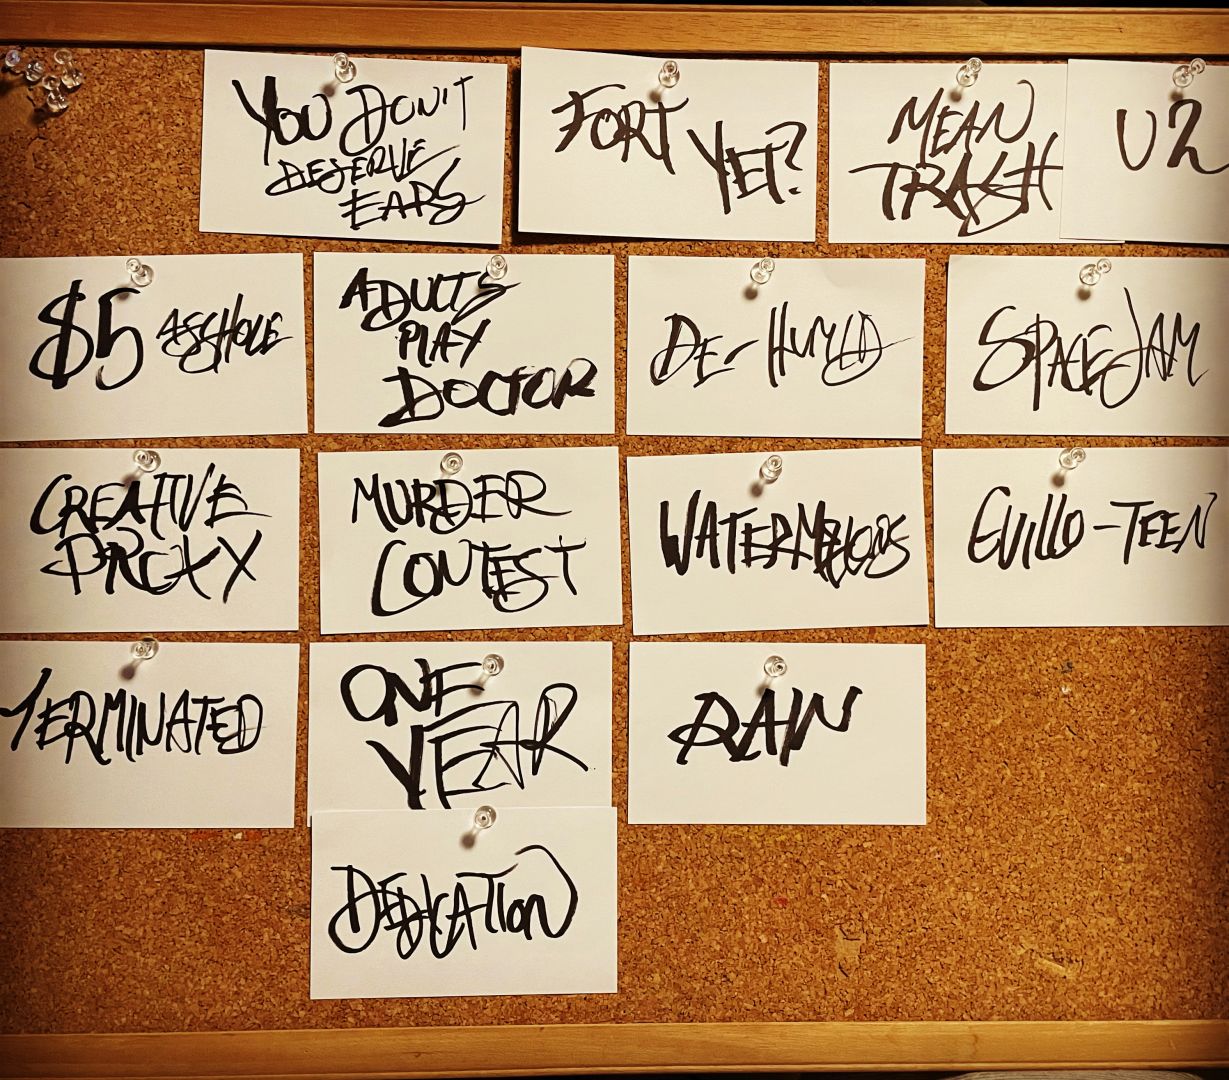 YOU DON'T
DESERVE
EARS
FORT
YET?
MEAN
TRASH
U2
$5 ASSHOLE
ADULTS
PLAY
DOCTOR
DE-HUMID
SPACE JAM
CREATIVE
PROXY
MURDER
CONTEST
WATERMELONS
GUILLO-TEEN
TERMINATED
ONE
YEAR
RAIN
DEDICATION